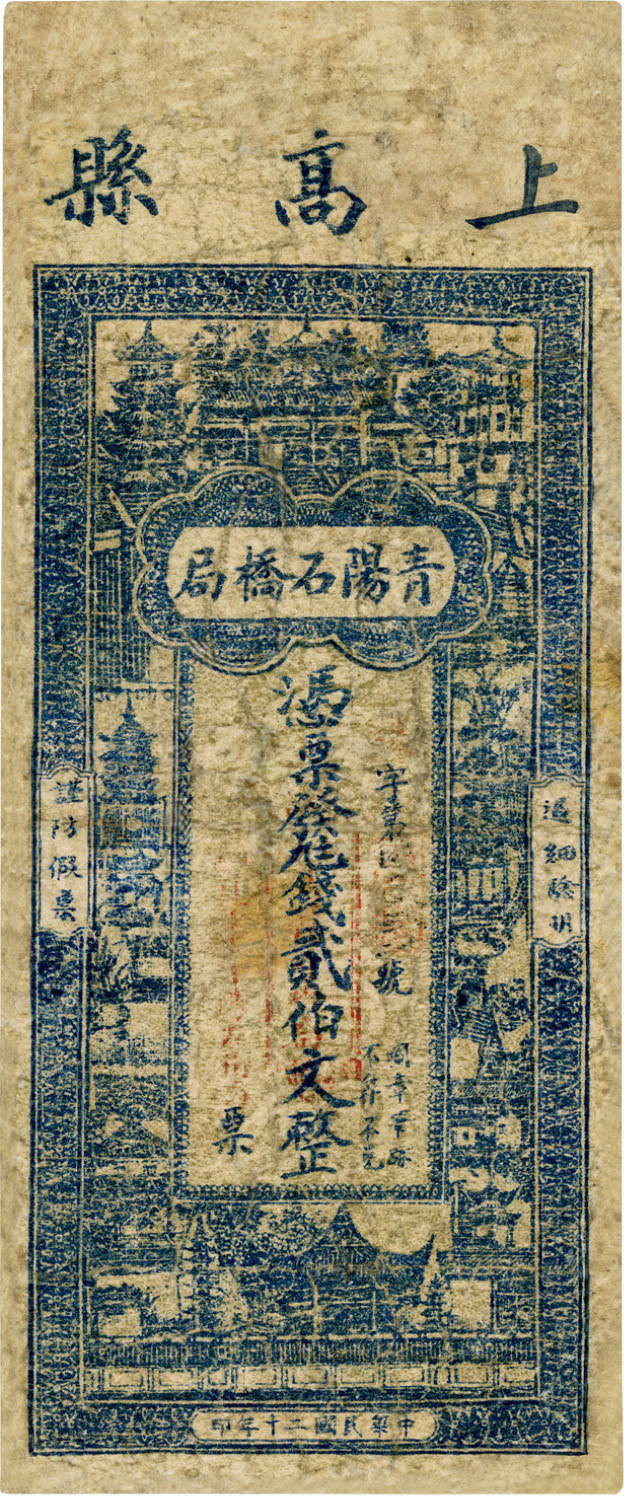 上高縣
青陽石橋局
過細驗明
字第 號
圖章筆跡
不符不兌
憑票發 錢貳伯文整
票
謹防假票
中華民國二十年印